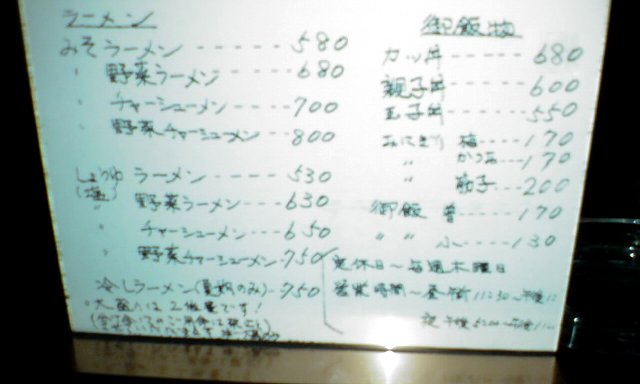 ラーメン
みそラーメン------580
〃 野菜ラーメン----680
〃 チャーシューメン---700
〃 野菜チャーシューメン--800
しょうゆ ラーメン-----530
(塩)
〃 野菜ラーメン---630
チャーシューメン----650
〃 野菜チャーシューメン-750
冷しラーメン(夏期のみ)--750
御飯物
カツ丼------680
親子丼------600
玉子丼------550
おにぎり 梅----170
〃 かつお---170
〃 筋子---200
御飯 普----170
〃 〃 小-----130
定休日〜毎週木曜日
営業時間〜昼 午前11:30〜午後
夜 午後5:00〜午後